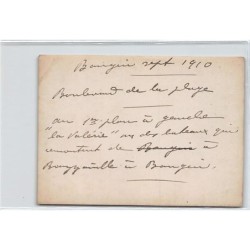 Bougie sept 1910
Boulevard de la plage
au 1er plan à gauche
"la Valérie" un des bateaux qui
remontent de Bougie à
à Bougie.